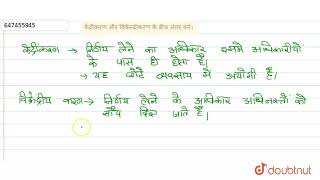 647455945
केंद्रीकरण और विकेन्द्रीकरण के बीच अंतर करें।
केंद्रीकरण → निर्णय लेने का अधिकार उसमें अधिकारियों
के पास ही होता है।
→ यह छोटे व्यवसाय में उपयोगी है।
विकेंद्रीय करण → निर्णय लेने के अधिकार अधिनस्तों को
सौंप दिए जाते हैं।
doubtnut